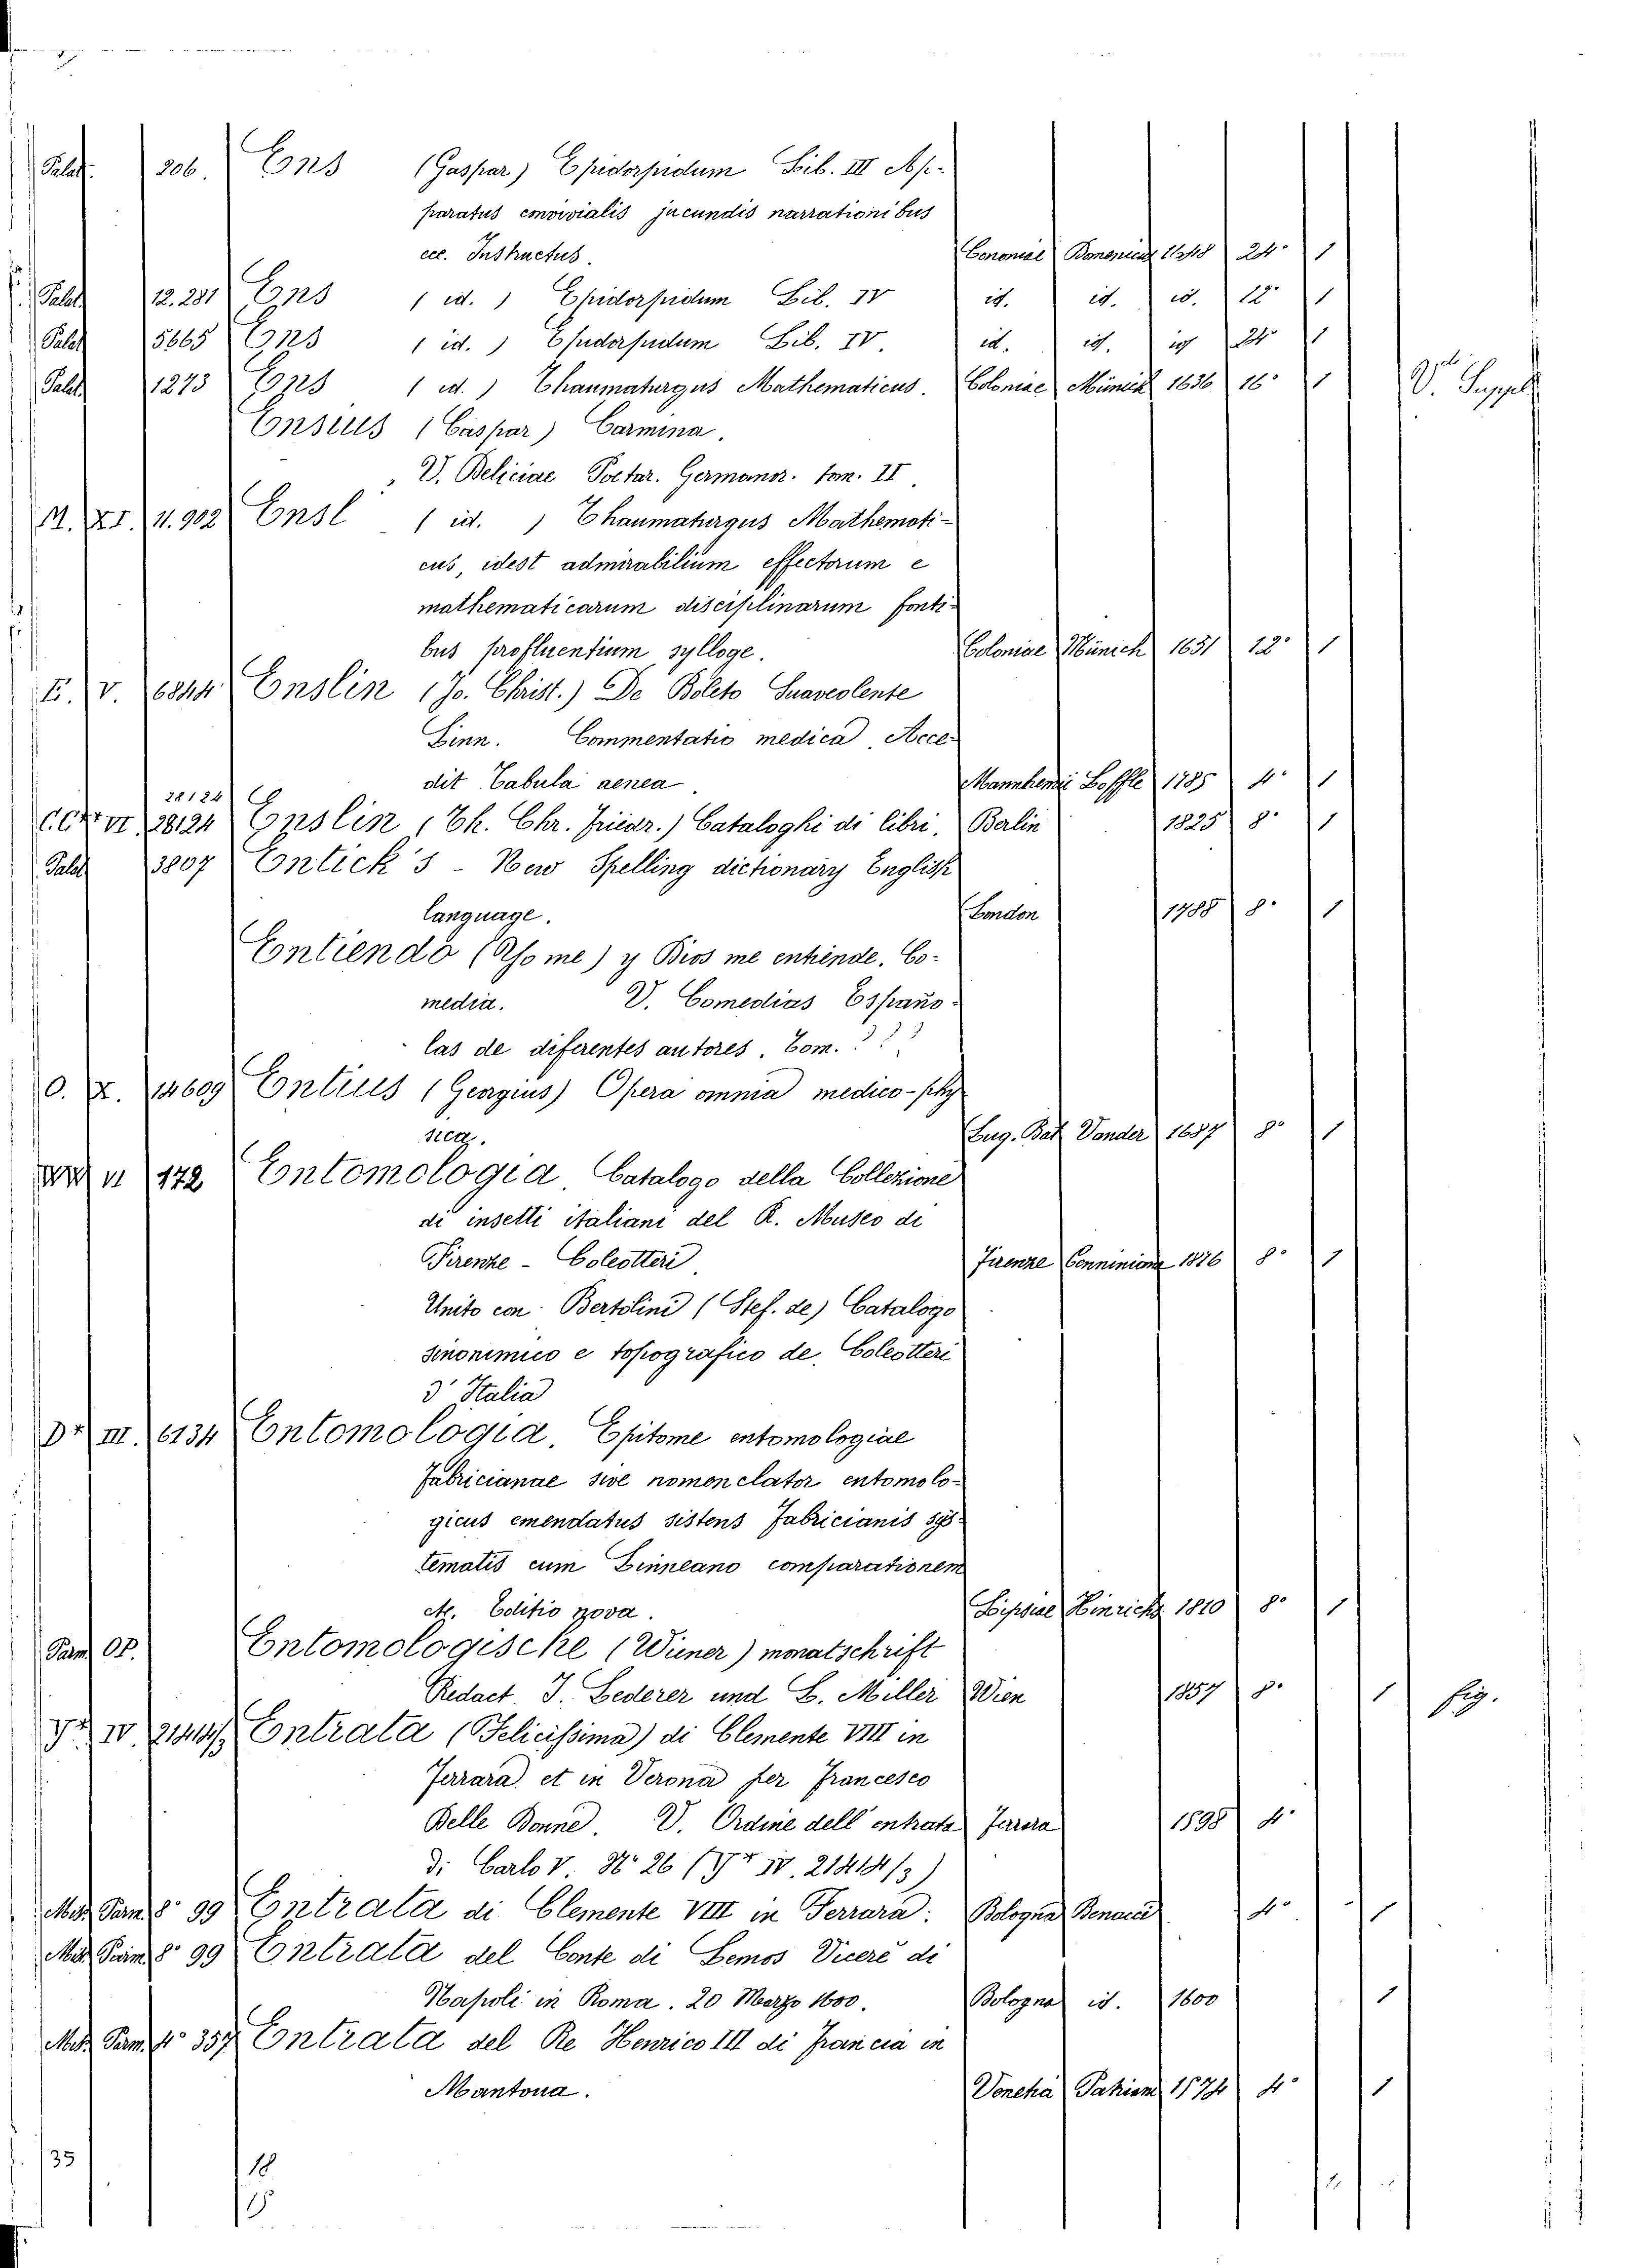 Palat. 206. Ens (Gaspar) Epidorpidum Lib. III Ap-
paratus convivialis jucundis narrationibus
ecc. Instructus. 24° 1
Palat. 12.281 Ens (id.) Epidorpidum Lib. IV id. id. id. 12° 1
Palat 5665 Ens (id.) Epidorpidum Lib. IV. id. id. id 24° 1
Palat 1273 Ens (id.) Thaumaturgus Mathematicus. Coloniae Münich 1636 16° 1 V. Suppel
Ensius (Caspar) Carmina.
V. Deliciae Poetar. Germanor. tom. II.
M. XI. 11.902 Ensl (id.) Thaumaturgus Mathemati-
cus, idest admirabilium effectorum e
mathematicarum disciplinarum fonti-
bus profluentium sylloge. Coloniae Münich 1651 12° 1
E. V. 6844 Enslin (Jo. Christ.) De Boleto Suaveolente
Linn. Commentatio medica, Acce-
dit Tabula aenea. Loffle 1785 4° 1
28124
VI 28124 Enslin (Th. Chr. Friedr.) Cataloghi di libri. Berlin 1825 8° 1
Palat 3807 Entick's - New Spelling dictionary English
language. London 1788 8° 1
Entiendo (Yo me) y Dios me entiende. Co-
media. V. Comedias Españo-
las de diferentes autores. Tom. ???
O. X. 14609 Entius (Georgius) Opera omnia medico-phy
sica. Lug. Bat Vander 1687 8° 1
VI 172 Entomologia Catalogo della Collezione
di insetti italiani del R. Museo di
Firenze - Coleotteri. Firenze Cenniniana 1876 8° 1
Unito con: Bertolini (Stef. de) Catalogo
sinonimico e topografico de' Coleotteri
d'Italia
D* III. 6134 Entomologia. Epitome entomologiae
Fabricianae sive nomenclator entomolo-
gicus emendatus sistens Fabricianis sys-
tematis cum Linneano comparationem
etc. Editio nova. Lipsiae Hinrichs 1810 8° 1
Parm OP. Entomologische (Wiener) monatschrift
Redact. J. Lederer und L. Miller Wien 1857 8° 1 fig.
Y* IV 21414/3 Entrata (Felicissima) di Clemente VIII in
Ferrara et in Verona per Francesco
Delle Donne. V. Ordine dell'entrata Ferrara 1598 4°
di Carlo V. N° 26 (Y* IV. 21414/3)
Misc. Parm. 8° 99 Entrata di Clemente VIII in Ferrara. Bologna Benacci 4° 1
Misc. Parm. 8° 99 Entrata del Conte di Lemos Vicerè di
Napoli in Roma. 20 Marzo 1600. Bologna id. 1600 1
Misc. Parm. 4° 357 Entrata del Re Henrico III di Francia in
Mantova. Venetia 1574 4° 1
35 18
15